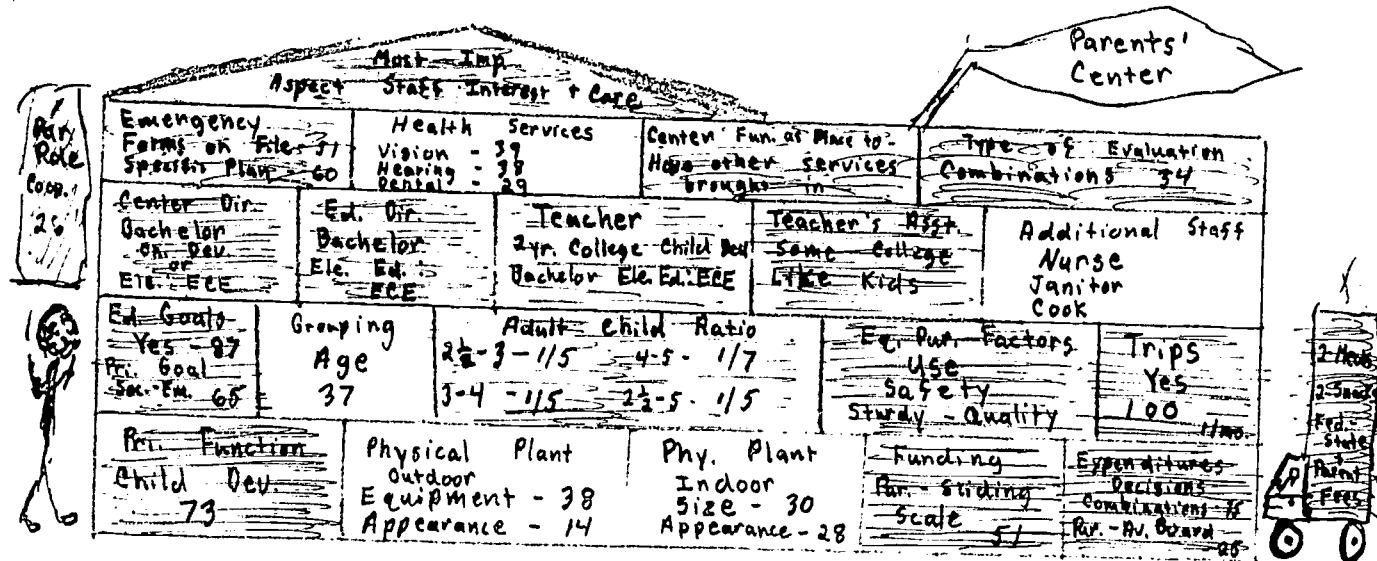 Parents'
Center
Most Imp.
Aspect Staff Interest + Care
Par.
Role
Coop.
26
Emergency
Forms on File - 31
Specific Plan - 60
Health Services
Vision - 39
Hearing - 38
Dental - 29
Center Fun. as Place to
Have other services
brought in
Type of Evaluation
Combinations 34
Center Dir.
Bachelor
Ch. Dev.
or
Ele. ECE
Ed. Dir.
Bachelor
Ele. Ed.:
ECE
Teacher
2yr. College Child Dev
Bachelor Ele. Ed.: ECE
Teacher's Asst.
Some College
Like Kids
Additional Staff
Nurse
Janitor
Cook
Ed. Goals
Yes - 87
Pri. Goal
Soc.-Em. 65
Grouping
Age
37
Adult Child Ratio
2½-3 - 1/5 4-5 - 1/7
3-4 - 1/5 2½-5 - 1/5
Eq. Pur. Factors
Use
Safety
Sturdy - Quality
Trips
Yes
100
1/mo.
2-Meals
2-Snacks
Fed.-
State
+
Parent
Fees
Pri. Function
Child Dev.
73
Physical Plant
Outdoor
Equipment - 38
Appearance - 14
Phy. Plant
Indoor
Size - 30
Appearance - 28
Funding
Par. - Sliding
Scale
51
Expenditures
Decisions
Combinations
Par. - Av. Board